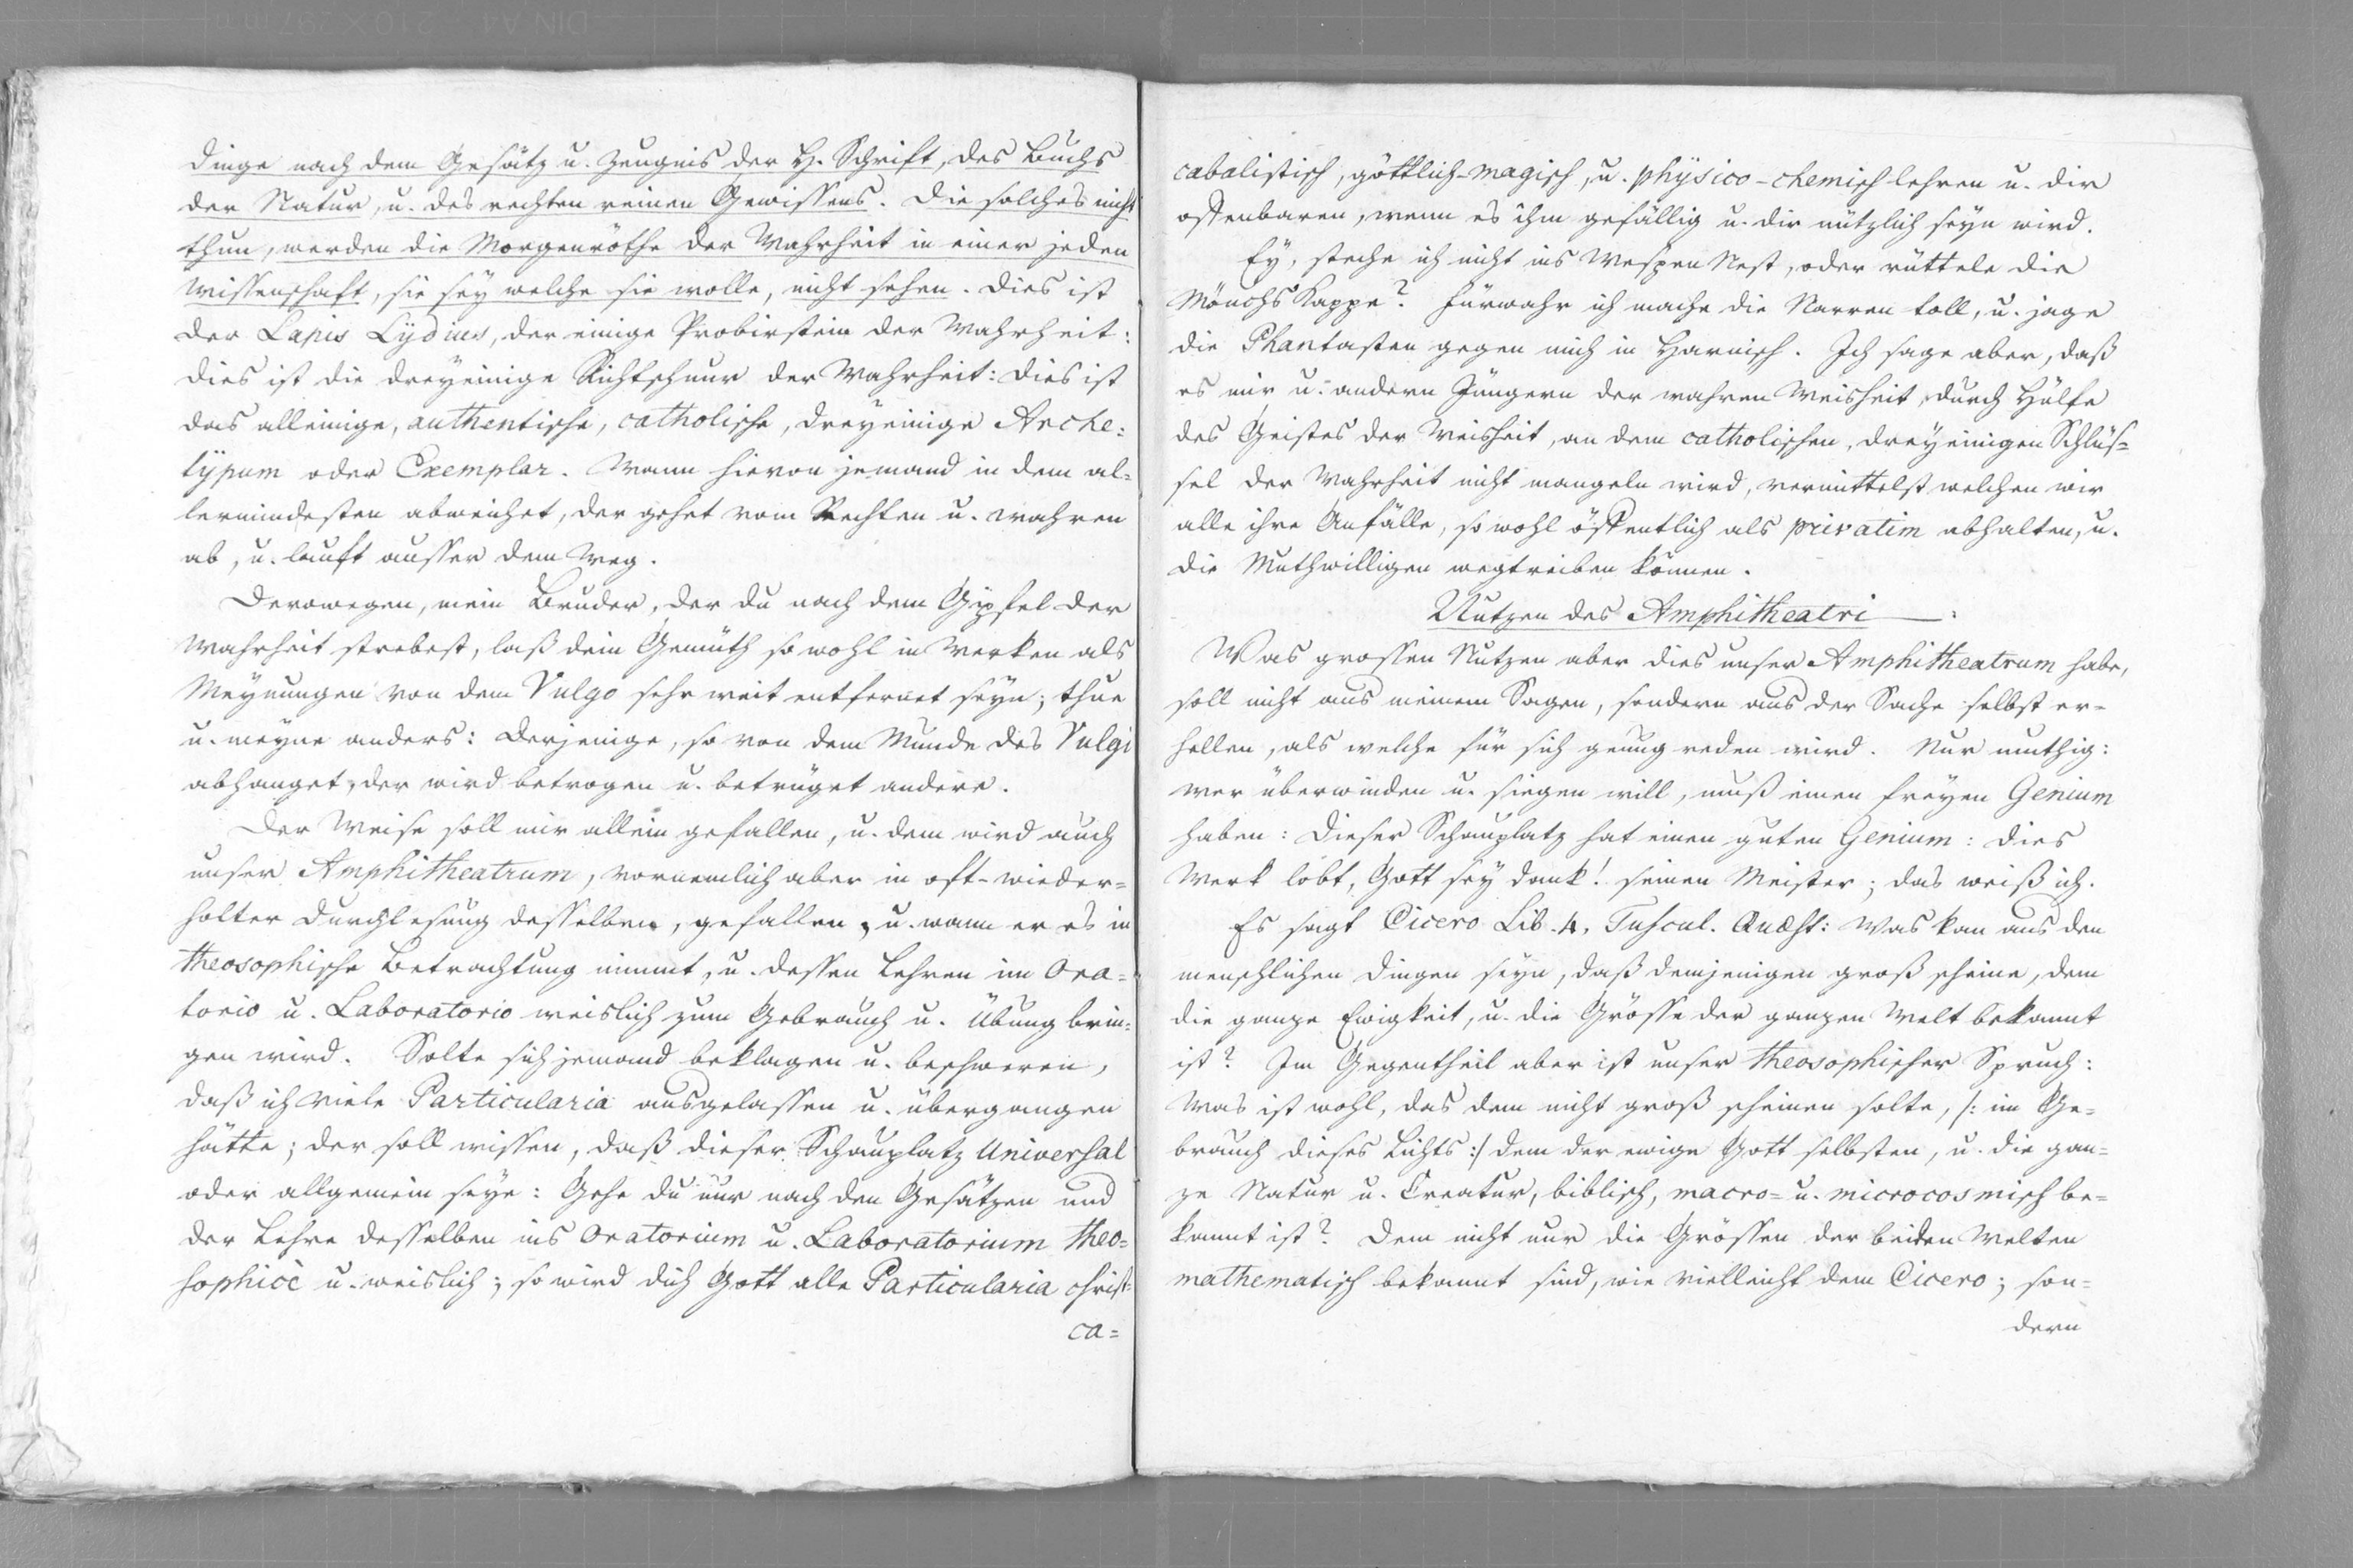 Dinge nach dem Gesätz u. Zeugnis der H. Schrift, des Buchs
der Natur, u. des rechten reinen Gewissens. Die solches nicht
thun, werden die Morgenröthe der Wahrheit in einer jeden
Wissenschaft, sie sey welche sie wolle, nicht sehen. Dies ist
der Lapis Lydius, der einige Probirstein der Wahrheit:
dies ist die dreyeinige Richtschnur der Wahrheit: dies ist
das alleinige, authentische, catholische, dreyeinige Arche=
typum oder Exemplar. Wann hievon jemand in dem al=
lermindesten abweichet, der gehet vom Rechten u. wahren
ab, u. lauft ausser dem Weg.
Derowegen, mein Bruder, der du nach dem Gipfel der
Wahrheit strebest, laß dein Gemüth so wohl in Werken als
Meynungen von dem Vulgo sehr weit entfernet seyn; thue
u. meyne anders: Derjenige, so von dem Munde des Vulgi
abhanget, der wird betrogen u. betrüget andere.
Der Weise soll mir allein gefallen, u. dem wird auch
unser Amphitheatrum, vornemlich aber in oft-wieder=
holter Durchlesung desselben, gefallen, u. wann er es in
theosophische Betrachtung nimmt, u. dessen Lehren im Ora=
torio u. Laboratorio weislich zum Gebrauch u. Übung brin=
gen wird. Solte sich jemand beklagen u. beschweren,
daß ich viele Particularia ausgelassen u. übergangen
hätte; der soll wissen, daß dieser Schauplatz Universal
oder allgemein seye: Gehe du nur nach den Gesätzen und
der Lehre desselben ins Oratorium u. Laboratorium theo=
sophicè u. weislich; so wird dich Gott alle Particularia christ=
ca=
cabalistisch, göttlich-magisch, u. physico-chemisch lehren u. dir
offenbaren, wenn es ihm gefällig u. dir nützlich seyn wird.
Ey, steche ich nicht ins Wespen Nest, oder rüttele die
Mönchs Kappe? Fürwahr ich mache die Narren toll, u. jage
die Phantasten gegen mich in Harnisch. Ich sage aber, daß
es mir u. andern Jüngern der wahren Weisheit, durch Hülfe
des Geistes der Weisheit, an dem catholischen, dreyeinigen Schlüs=
sel der Wahrheit nicht mangeln wird, vermittelst welchen wir
alle ihre Anfälle, so wohl öffentlich als privatim abhalten, u.
die Muthwilligen wegtreiben können.
Nutzen des Amphitheatri
Was grossen Nutzen aber dies unser Amphitheatrum habe,
soll nicht aus meinem Sagen, sondern aus der Sache selbst er=
hellen, als welche für sich genug reden wird. Nur muthig:
wer überwinden u. siegen will, muß einen freyen Genium
haben: Dieser Schauplatz hat einen guten Genium: dies
Werk lobt, Gott sey Dank! seinen Meister; das weiß ich.
Es sagt Cicero Lib. 4. Tuscul. Quæst: Was kan aus den
menschlichen Dingen seyn, daß demjenigen groß scheine, dem
die ganze Ewigkeit, u. die Grösse der ganzen Welt bekannt
ist? Im Gegentheil aber ist unser theosophischer Spruch:
Was ist wohl, das dem nicht groß scheinen solte, /: im Ge=
brauch dieses Lichts :/ dem der ewige Gott selbsten, u. die gan=
ze Natur u. Creatur, biblisch, macro= u. microcosmisch be=
kannt ist? Dem nicht nur die Grössen der beiden Welten
mathematisch bekannt sind, wie vielleicht dem Cicero; son=
dern